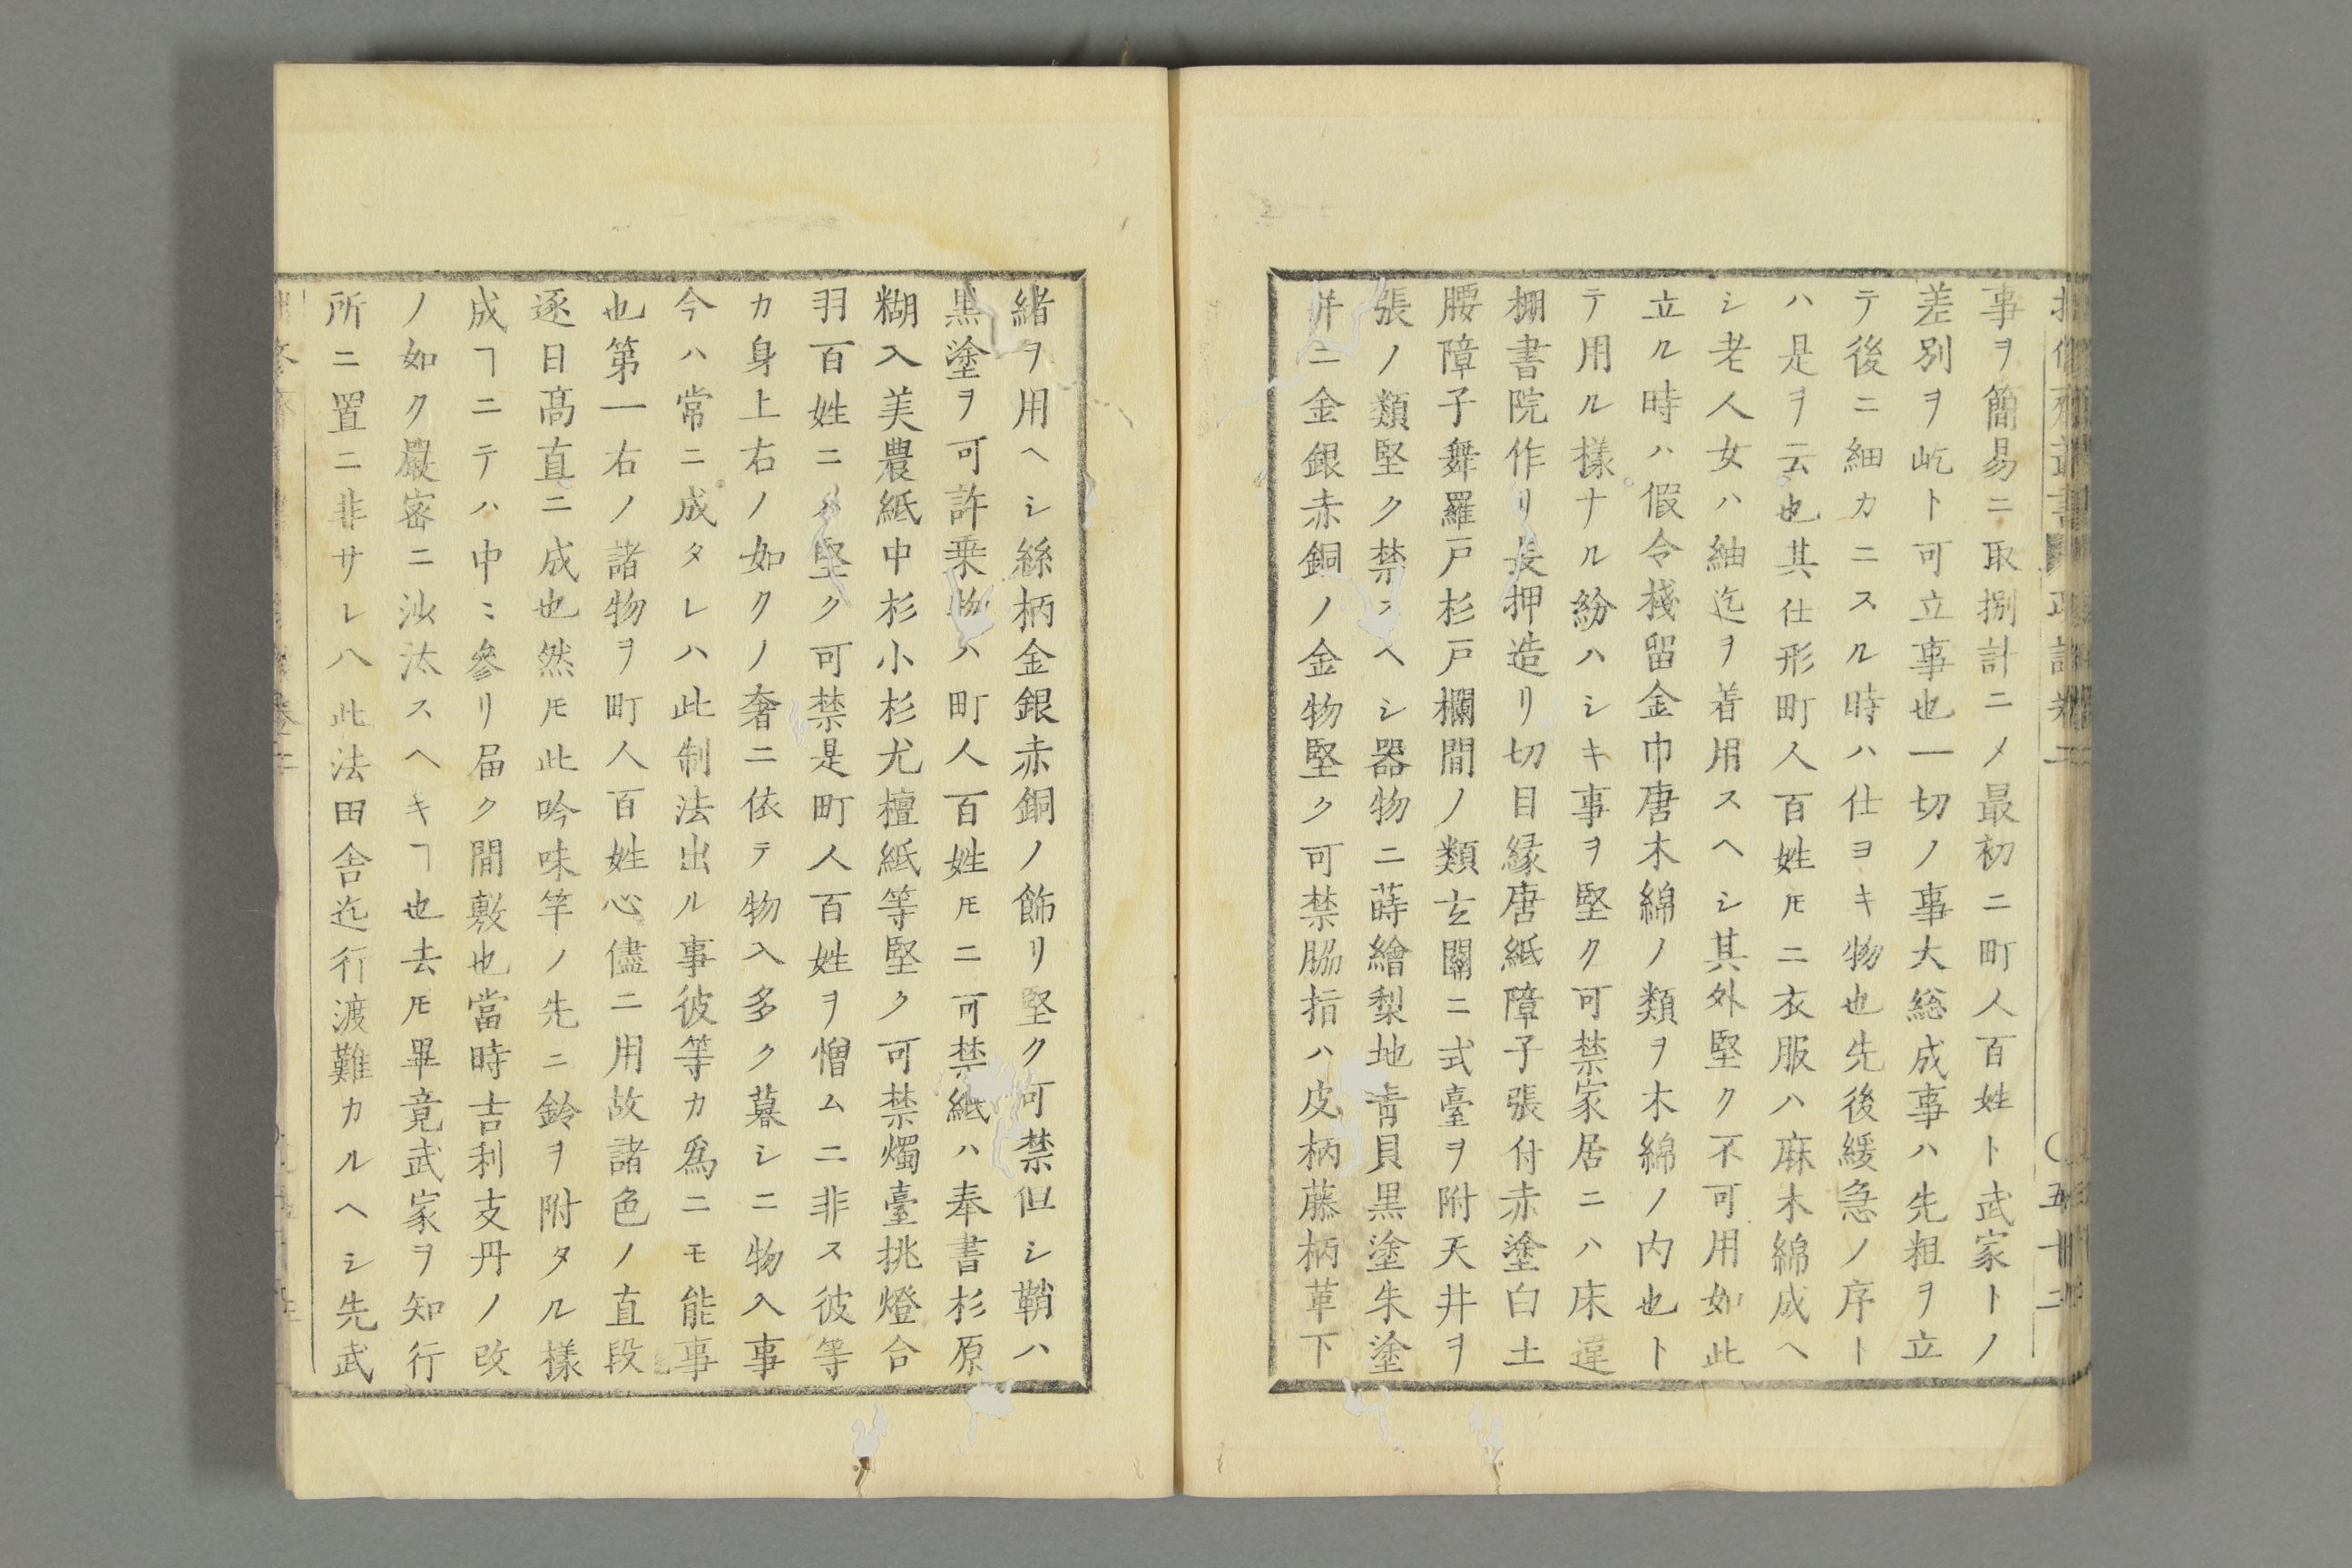 事ヲ簡易ニ取捌計ニノ最初ニ町人百姓ト武家トノ
差別ヲ屹ト可立事也一切ノ事大総成事ハ先粗ヲ立
テ後ニ細カニスル時ハ仕ヨキ物也先後緩急ノ序ト
ハ是ヲ云也其仕形町人百姓𪜈ニ衣服ハ麻木綿成ヘ
シ老人女ハ紬迄ヲ着用スヘシ其外堅ク不可用如此
立ル時ハ假令棧留金巾唐木綿ノ類ヲ木綿ノ内也ト
テ用ル樣ナル紛ハシキ事ヲ堅ク可禁家居ニハ床違
棚書院作リ長押造リ切目縁唐紙障子張付赤塗白土
腰障子舞羅戸杉戸欄間ノ類玄關ニ式臺ヲ附天井ヲ
張ノ類堅ク禁スヘシ器物ニ蒔繪梨地靑貝黒塗朱塗
并ニ金銀赤銅ノ金物堅ク可禁脇指ハ皮柄藤柄革下
緒ヲ用ヘシ絲柄金銀赤銅ノ飾リ堅ク可禁但シ鞘ハ
黒塗ヲ可許乗物ハ町人百姓𪜈ニ可禁紙ハ奉書杉原
糊入美農紙中杉小杉尤檀紙等堅ク可禁燭臺挑燈合
羽百姓ニハ堅ク可禁是町人百姓ヲ憎ムニ非ス彼等
カ身上右ノ如クノ奢ニ依テ物入多ク暮シニ物入事
今ハ常ニ成タレハ此制法出ル事彼等カ爲ニモ能事
也第一右ノ諸物ヲ町人百姓心儘ニ用故諸色ノ直段
逐日髙直ニ成也然𪜈此吟味竿ノ先ニ鈴ヲ附タル樣
成ヿニテハ中〻參リ届ク間敷也當時吉利支丹ノ改
ノ如ク嚴密ニ沙汰スヘキヿ也去𪜈畢竟武家ヲ知行
所ニ置ニ非サレハ此法田舎迄行渡難カルヘシ先武